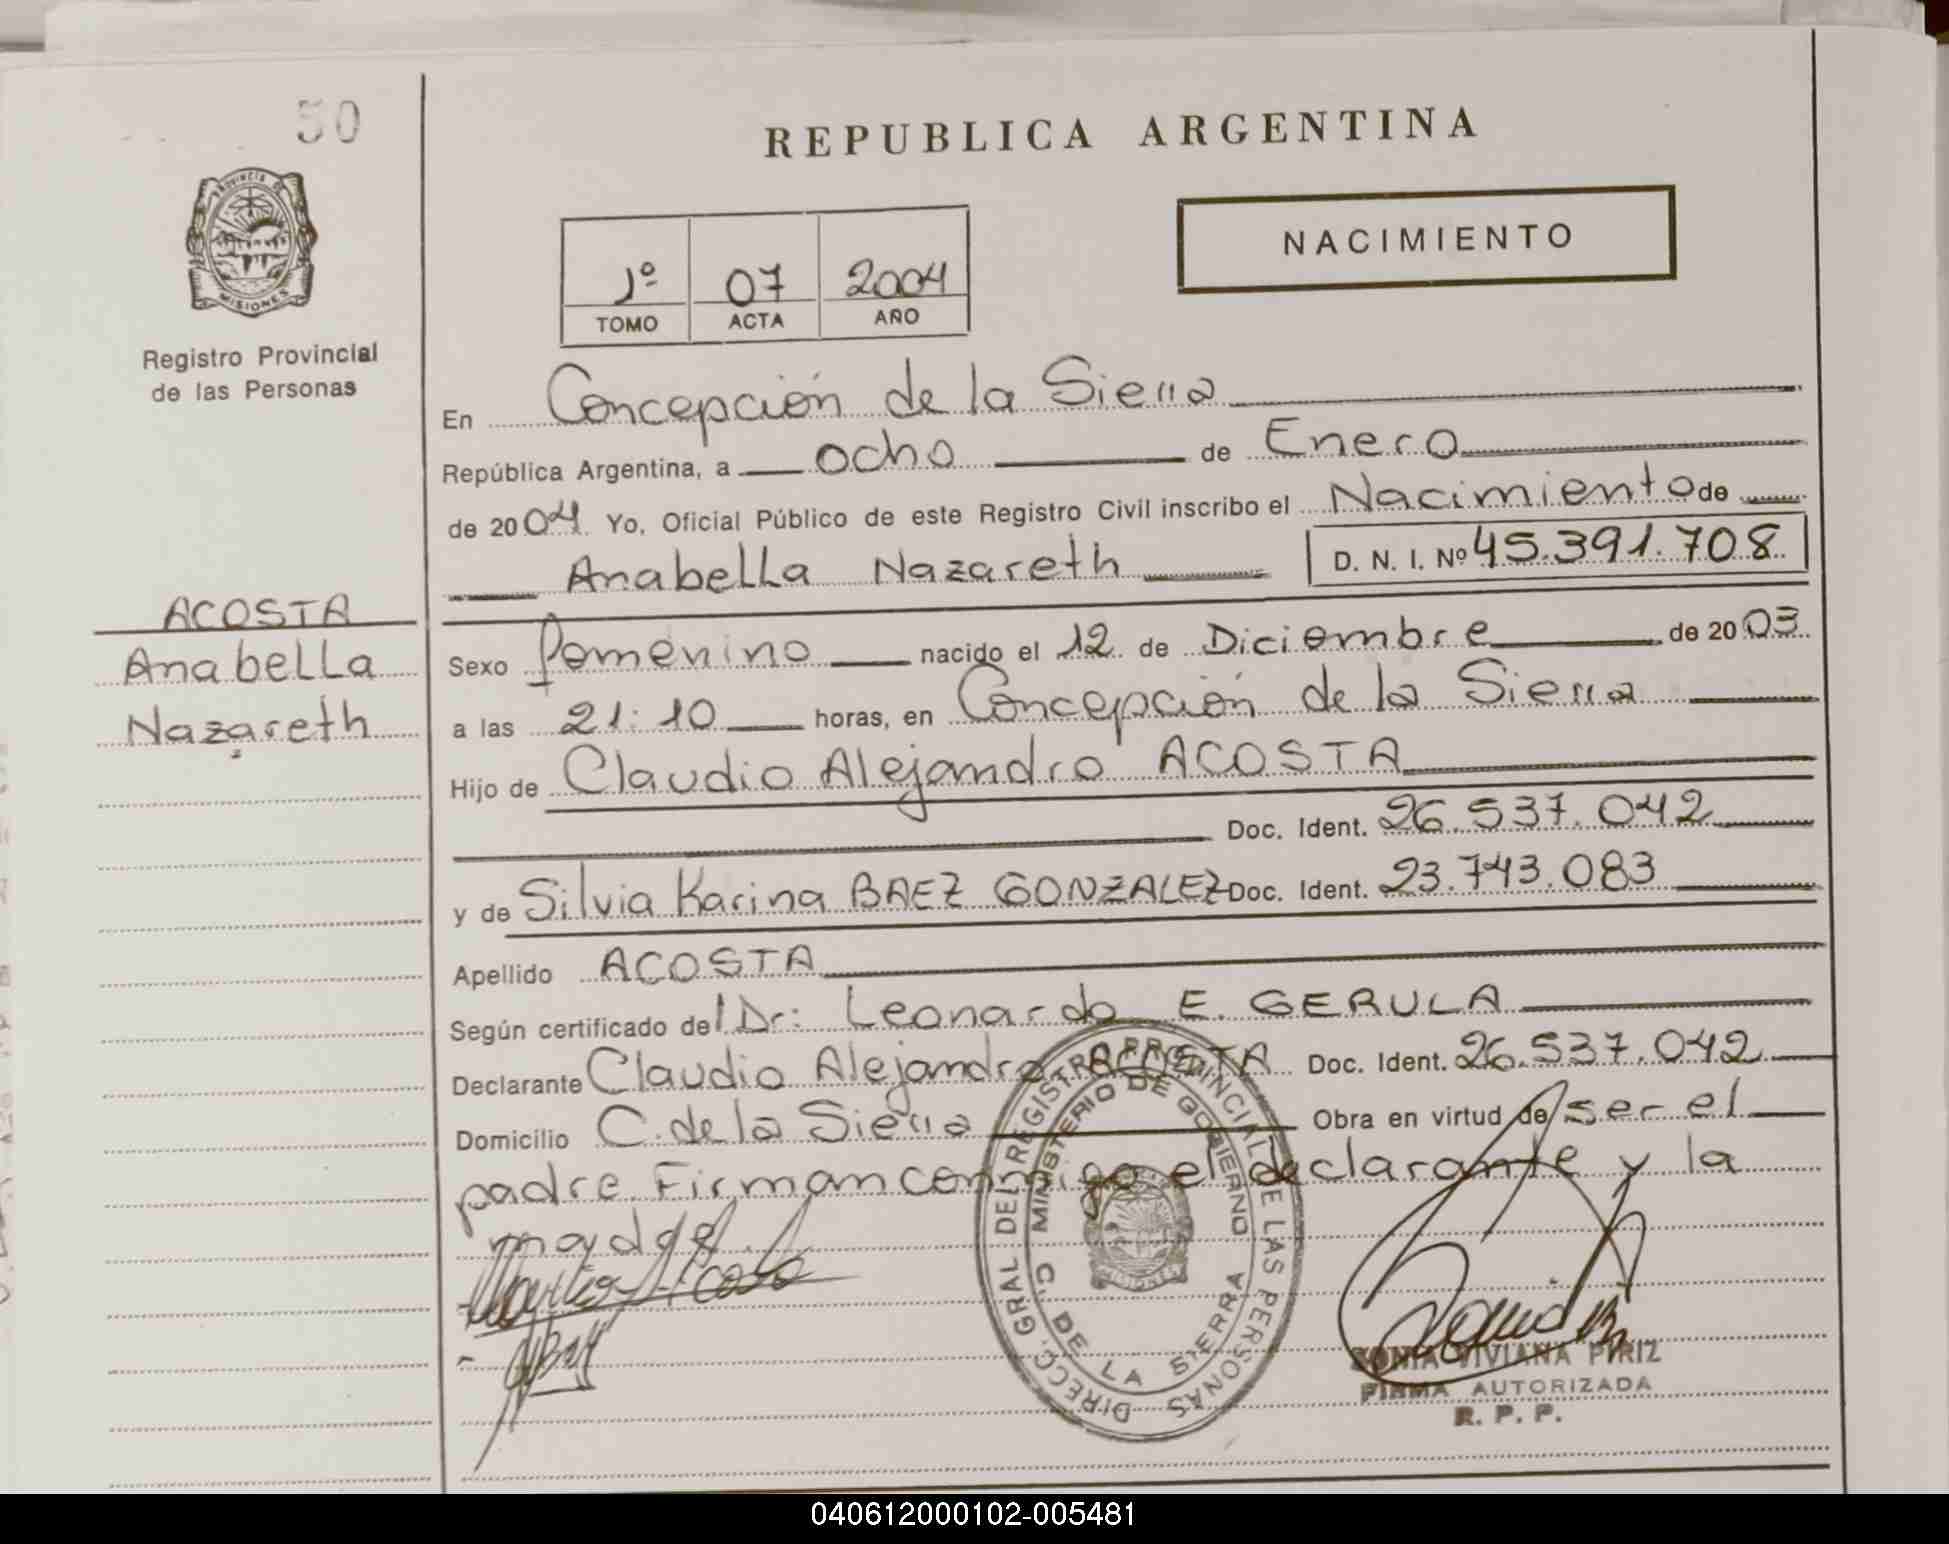 50
REPUBLICA ARGENTINA
PROVINCIA DE
MISIONES
Registro Provincial
de las Personas
NACIMIENTO
1º 07 2004
TOMO ACTA AÑO
En Concepción de la Sierra
República Argentina, a ocho de Enero
de 2004. Yo, Oficial Público de este Registro Civil inscribo el Nacimiento de
Anabella Nazareth D. N. I. Nº 45.391.708
ACOSTA
Anabella
Nazareth
Sexo femenino nacido el 12 de Diciembre de 2003
a las 21:10 horas, en Concepción de la Sierra
Hijo de Claudio Alejandro ACOSTA
Doc. Ident. 26.537.042
y de Silvia Karina BAEZ GONZALEZ Doc. Ident. 23.743.083
Apellido ACOSTA
Según certificado del Dr: Leonardo E. GERULA
Declarante Claudio Alejandro ACOSTA Doc. Ident. 26.537.042
Domicilio C. de la Sierra Obra en virtud de ser el
padre. Firman conmigo el declarante y la
madre.
DIRECC. GRAL DEL REGISTRO PROVINCIAL DE LAS PERSONAS
MINISTERIO DE GOBIERNO
C. DE LA SIERRA
SONIA VIVIANA PIRIZ
FIRMA AUTORIZADA
R. P. P.
040612000102-005481